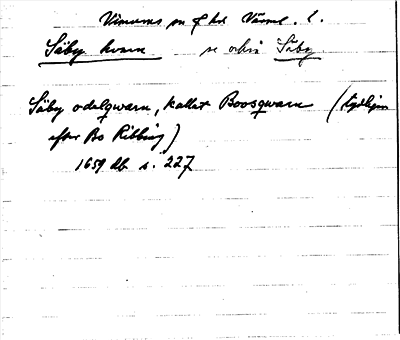 Visnums sn f hd Värml. l.
Säby kvarn se också Säby
Säby odelqwarn, kallat Boosqwarn (tydligen
efter Bo Ribbing)
1659 db s. 227